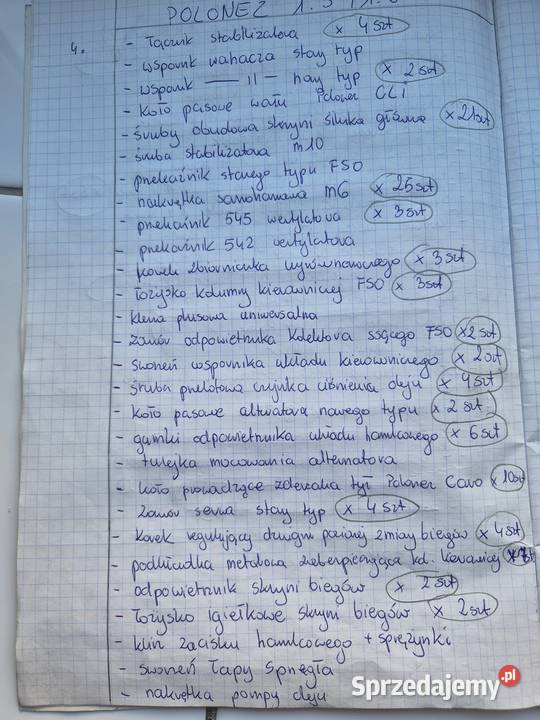 POLONEZ 1.5
4. - Łącznik stabilizatora x 4szt
- wspornik wahacza stary typ
- wspornik —— 11 — nay typ x 2szt
- koło pasowe wału Polonez GLI
- śruby obudowa skrzyni silnika główne x 21szt
- śruba stabilizatora m10
- przekaźnik starego typu FSO
- nakrętka samohamowna m6 x 25szt
- przekaźnik 545 wentylatora x 3szt
- przekaźnik 542 wentylatora
- korek zbiorniczka wyrównawczego x 3szt
- Łożysko kolumny kierowniczej FSO x 3szt
- klema plusowa uniwersalna
- zawór odpowietrznika kolektora ssącego FSO x 2szt
- sworzeń wspornika układu kierowniczego x 2szt
- śruba przelotowa czujnika ciśnienia oleju x 4szt
- koło pasowe alternatora nowego typu x 2szt
- gumki odpowietrznika układu hamulcowego x 6szt
- tulejka mocowania alternatora
- koło prowadzące zderzaka tył Polonez Caro x 10szt
- Zawór serwa stary typ x 4szt
- korek regulujący drążni zmiany biegów x 4szt
- podkładka metalowa zabezpieczająca kol. kierowniczej
- odpowietrznik skrzyni biegów x 2szt
- Łożysko igiełkowe skrzyni biegów x 2szt
- klin zacisku hamulcowego + sprężynki
- sworzeń łapy sprzęgła
- nakrętka pompy oleju
Sprzedajemy.pl